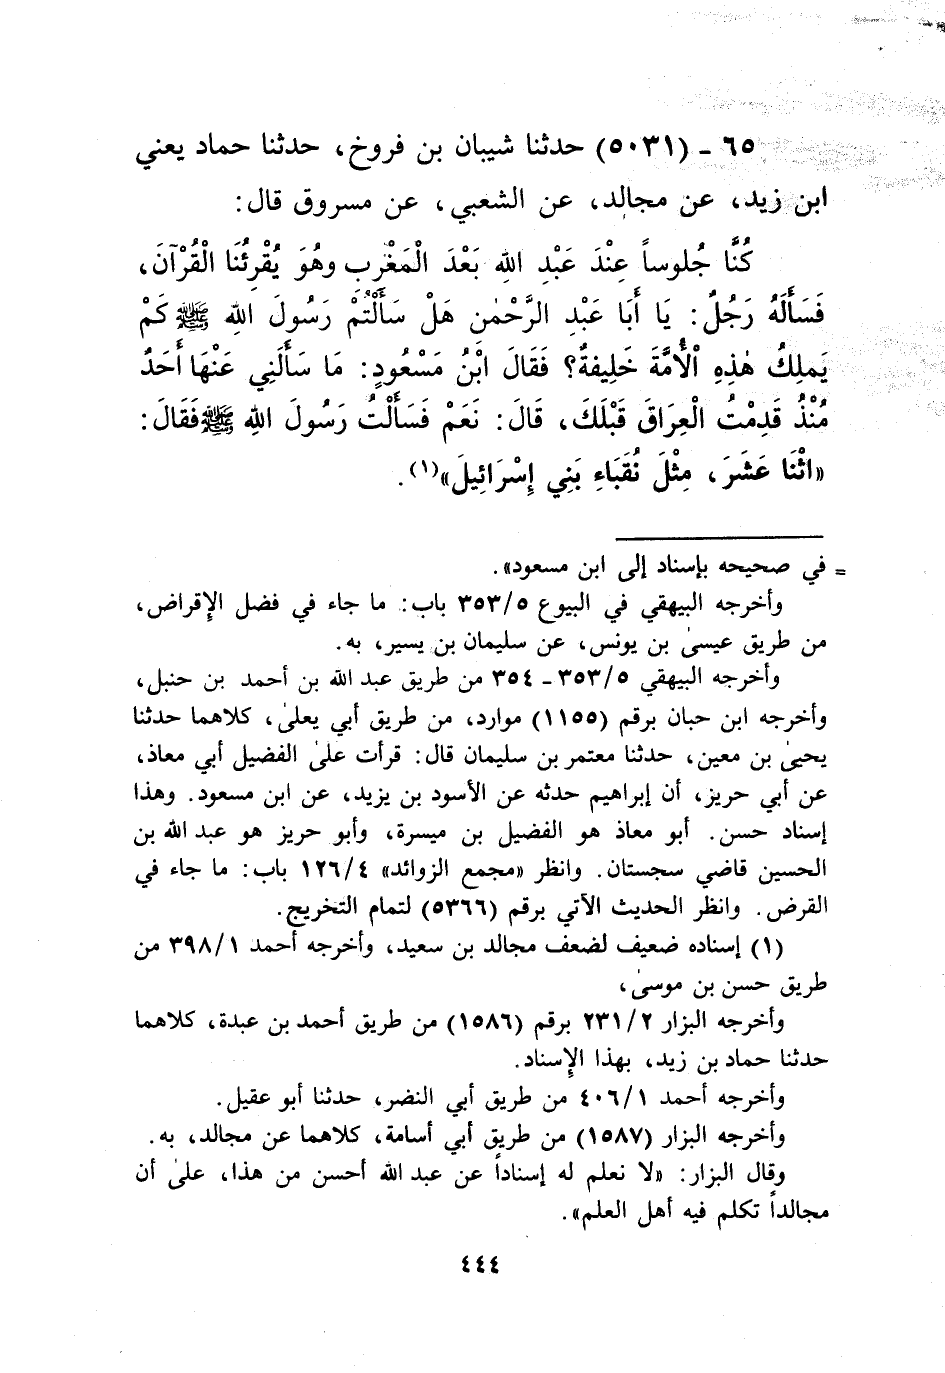 ٦٥ ـ (٥٠٣١) حدثنا شيبان بن فروخ، حدثنا حماد يعني
ابن زيد، عن مجالد، عن الشعبي، عن مسروق قال:
كُنَّا جُلوساً عِنْدَ عَبْدِ اللهِ بَعْدَ الْمَغْرِبِ وهُوَ يُقْرِئُنَا الْقُرْآنَ،
فَسَأَلَهُ رَجُلٌ: يَا أَبَا عَبْدِ الرَّحْمٰنِ هَلْ سَأَلْتُمْ رَسُولَ اللهِ ﷺ كَمْ
يَملِكُ هٰذِهِ الْأُمَّةَ خَلِيفةٌ؟ فَقَالَ ابْنُ مَسْعُودٍ: مَا سَأَلَنِي عَنْهَا أَحَدٌ
مُنْذُ قَدِمْتُ الْعِرَاقَ قَبْلَكَ، قَالَ: نَعَمْ فَسَأَلْتُ رَسُولَ اللهِ ﷺ فَقَالَ:
«اثْنَا عَشَرَ، مِثْلَ نُقَبَاءِ بَنِي إِسْرَائِيلَ»(١).
= في صحيحه بإسناد إلى ابن مسعود».
وأخرجه البيهقي في البيوع ٣٥٣/٥ باب: ما جاء في فضل الإقراض،
من طريق عيسىٰ بن يونس، عن سليمان بن يسير، به.
وأخرجه البيهقي ٣٥٣/٥ ـ ٣٥٤ من طريق عبد الله بن أحمد بن حنبل،
وأخرجه ابن حبان برقم (١١٥٥) موارد، من طريق أبي يعلىٰ، كلاهما حدثنا
يحيىٰ بن معين، حدثنا معتمر بن سليمان قال: قرأت علىٰ الفضيل أبي معاذ،
عن أبي حريز، أن إبراهيم حدثه عن الأسود بن يزيد، عن ابن مسعود. وهذا
إسناد حسن. أبو معاذ هو الفضيل بن ميسرة، وأبو حريز هو عبد الله بن
الحسين قاضي سجستان. وانظر «مجمع الزوائد» ١٢٦/٤ باب: ما جاء في
القرض. وانظر الحديث الآتي برقم (٥٣٦٦) لتمام التخريج.
(١) إسناده ضعيف لضعف مجالد بن سعيد، وأخرجه أحمد ٣٩٨/١ من
طريق حسن بن موسىٰ،
وأخرجه البزار ٢٣١/٢ برقم (١٥٨٦) من طريق أحمد بن عبدة، كلاهما
حدثنا حماد بن زيد، بهذا الإسناد.
وأخرجه أحمد ٤٠٦/١ من طريق أبي النضر، حدثنا أبو عقيل.
وأخرجه البزار (١٥٨٧) من طريق أبي أسامة، كلاهما عن مجالد، به.
وقال البزار: «لا نعلم له إسناداً عن عبد الله أحسن من هذا، علىٰ أن
مجالداً تكلم فيه أهل العلم».
٤٤٤